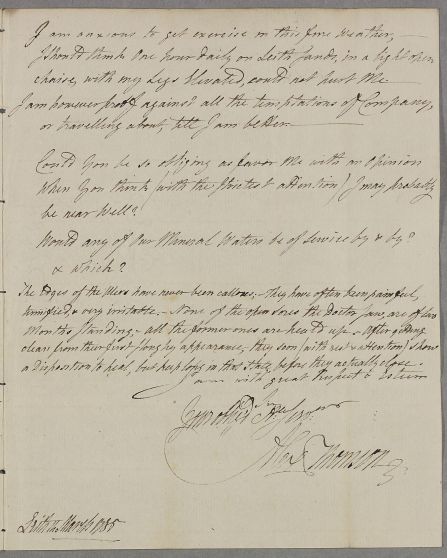 I am anxious to get exercise in this fine weather,
I should think One hour daily on Leith Sands, in a light open
chaise, with my Legs Elevated, could not hurt Me
I am however proof against all the temptations of Company,
or travelling about, till I am better
Could You be so obliging as favor Me with an Opinion
When You think (with the strictest attention) I may probably
be near Well?
Would any of Our Mineral Waters be of Service by & by?
& which?
The Edges of the Ulcers have never been callous, - they have often been painful,
& very irritable. - None of the open Sores the Doctor saw, are of
Months Standing, - all the former ones are heal'd up. - After getting
clean from their first Sloughy appearance, they soon (with rest & attention) show
a disposition to heal, but keep long in that State, before they actually close.
I am with great Respect & Esteem
Your obliged
Alexr Thomson
Leith March 1785